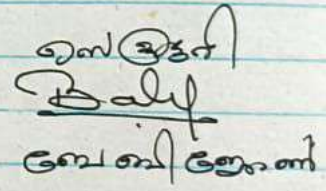 സെക്രട്ടറി
Baby
ബേബി ജോൺ